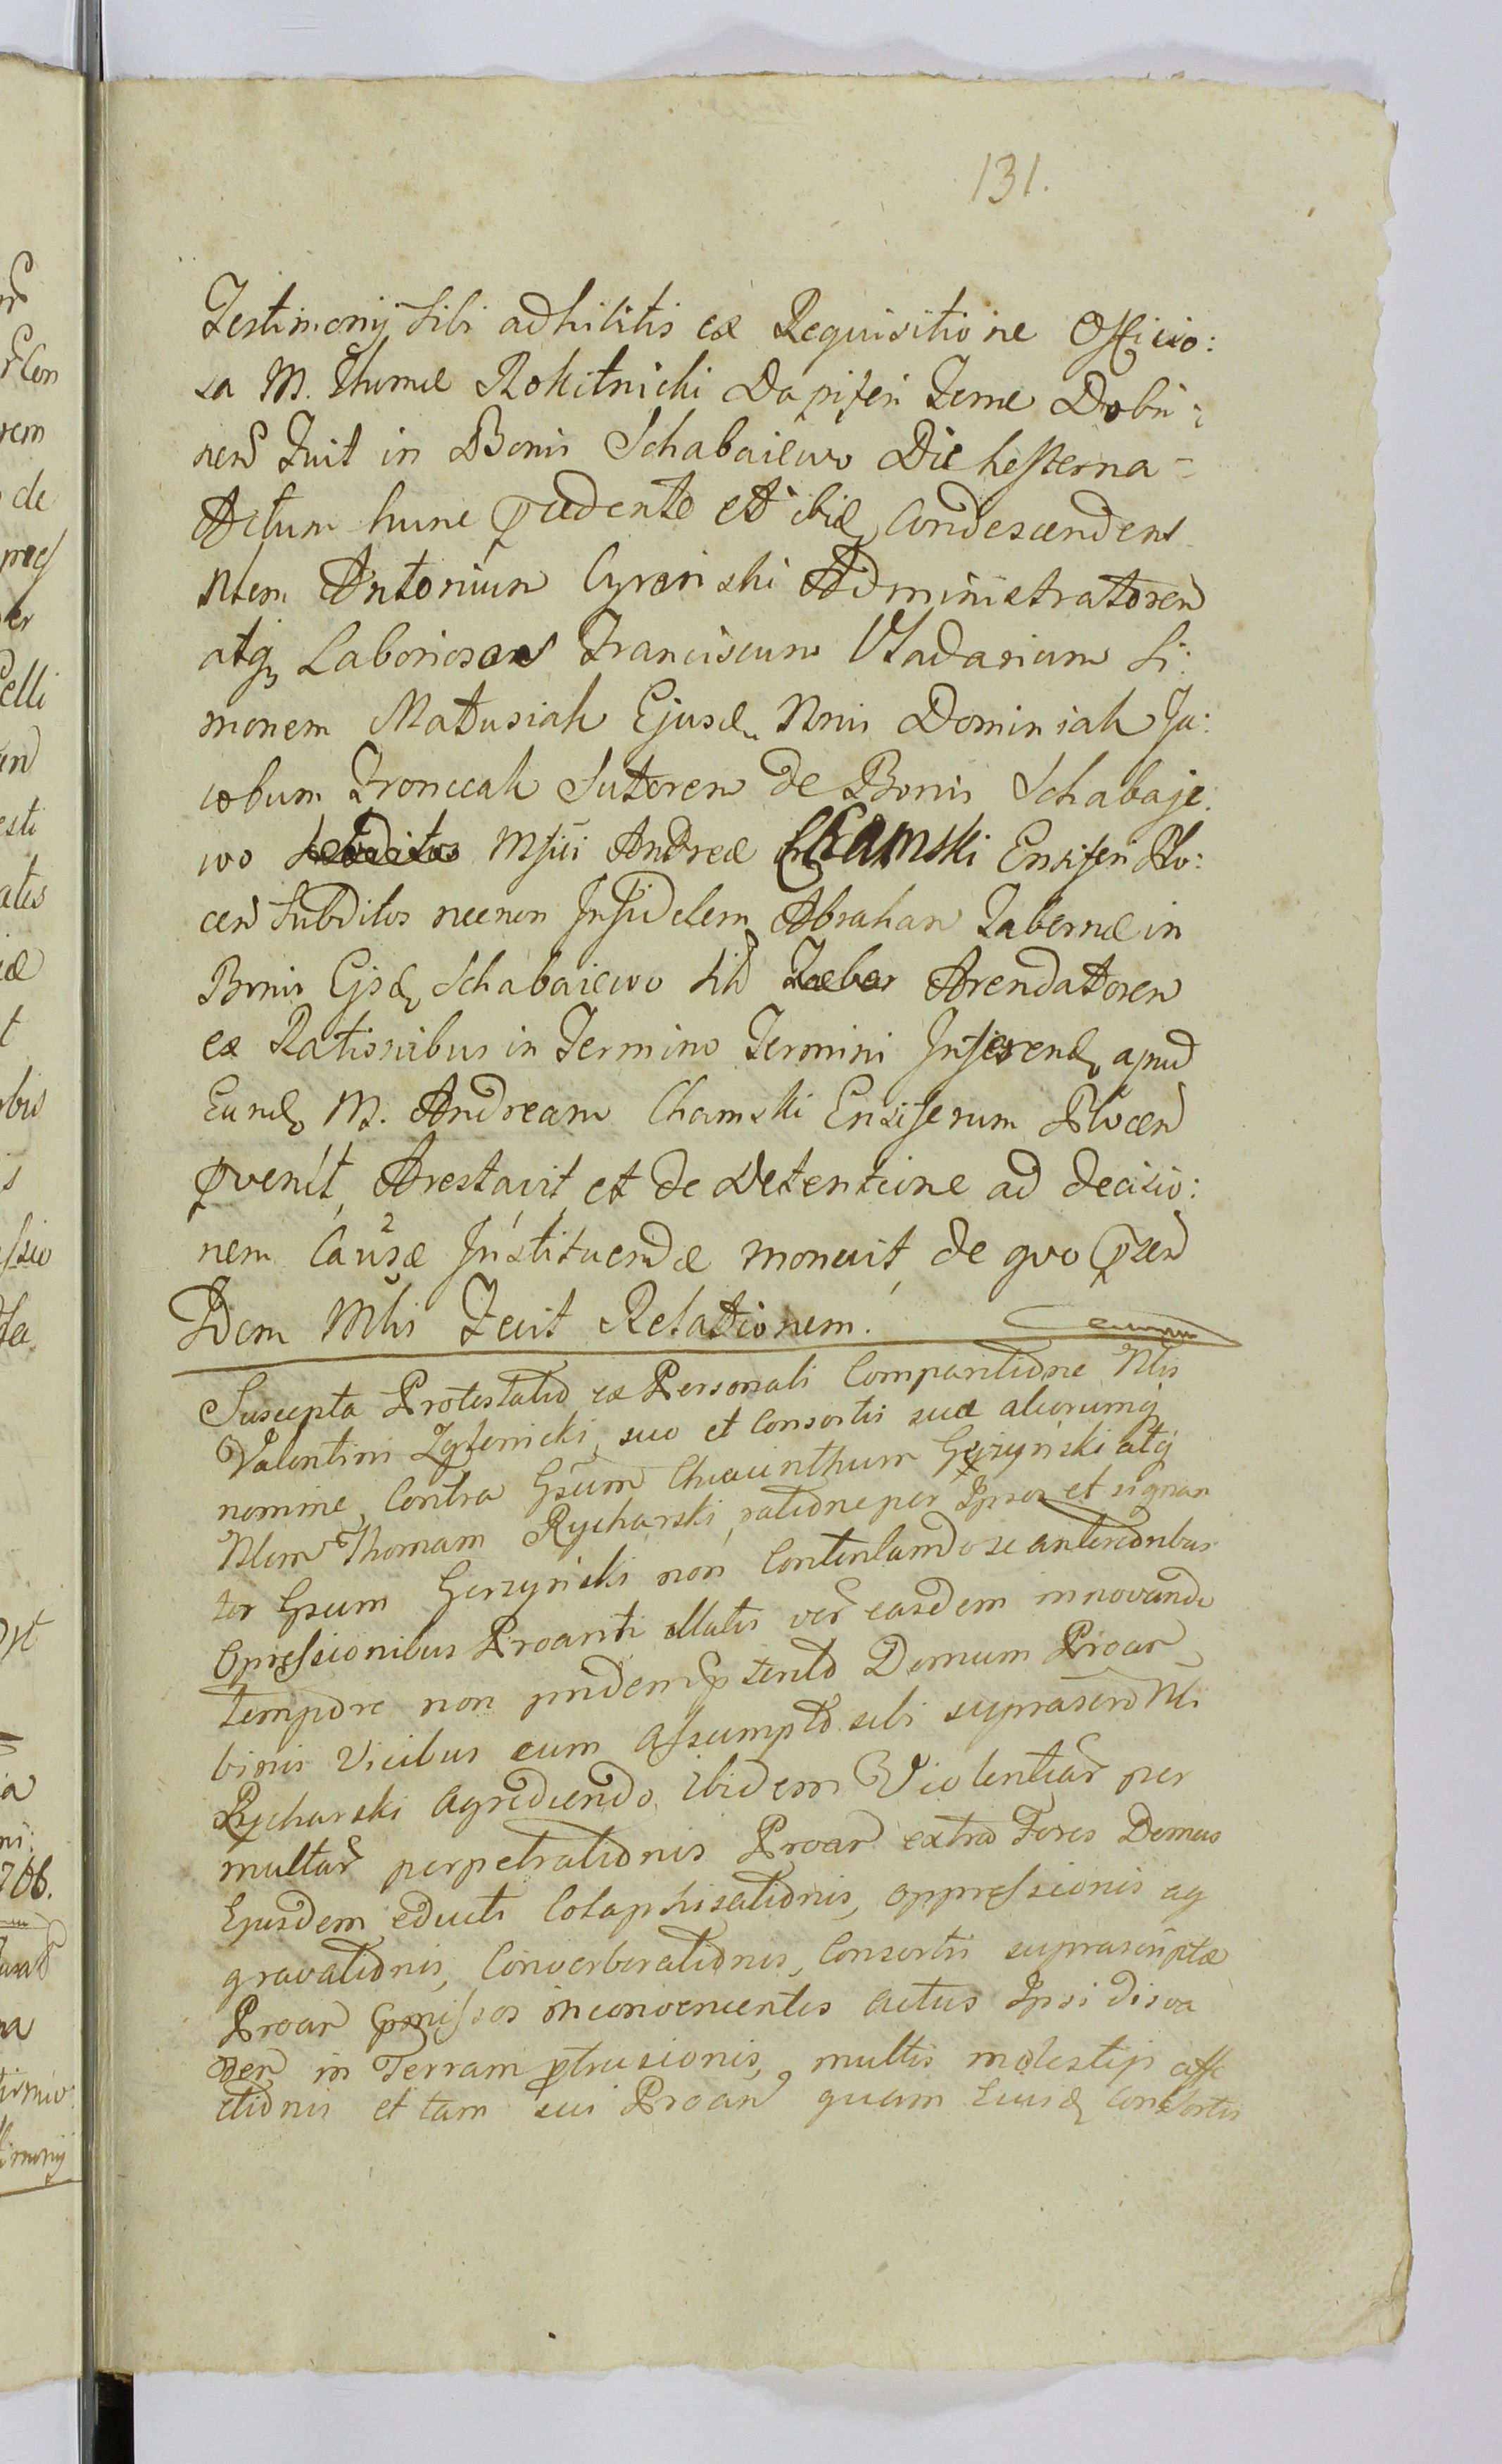 131.
Testimonij Sibi adhibitis ex Requisitione Officio:
sa M. Thomæ Rokitnicki Dapiferi Terræ Dobri:
nen Fuit in Bonis Schabaiewo Die hesterna
Actum hunc præcedente et ibidem Condescendens
Nlem Antonium Cyrański Administratorem
atq Laboriosos Franciscum Vladarium Si:
monem Matusiak Ejusd Nnis Dominiak Ja:
cobum Froncak Sutorem de Bonis Schabaje:
wo Msfici Andreæ Chamski Ensiferi Plo:
cen Subditos necnon Infidelem Abraham Tabernæ in
Bonis Ejsd Schabaiewo Sit Arendatorem
ex Rationibus in Termino Termini Inferend apud
Eund M. Andream Chamski Ensiferum Plocen
pvenit, Arestavit, et de Detentione ad decisio:
nem Causæ Instituendæ monuit, de quo pzen
Idem Mlis Fecit Relationem.
Suscepta Protestatio ex Personali Comparitione Nlis
Valentini Zglenicki, suo et Consortis suæ aliorumq
nomine, Contra Gsum Chiacinthum Gerzyński atq
Nlem Thomam Rycharski, ratione per Ipsos et signan
ter Gsum Gerzyński non Contentando se anterioribus
Opressionibus Proanti illatis ver easdem innovando
tempore non pridem p terito Domum Proan
binis Vicibus cum Assumpto sibi suprascro Nli
Rycharski Agrediendo ibidem Violentiar per
multar perpetrationis Proan extra Fores Domus
Ejusdem educti Colaphisationis, oppressionis ag
gravationis, Converberationis, Consortis suprascriptæ
Proan Cpmissos inconvenientes actus Ipsi disva
den in Terram ptrusionis, multis molestijs affe
ctionis et tam sui Proan quam Eiusd Consortis